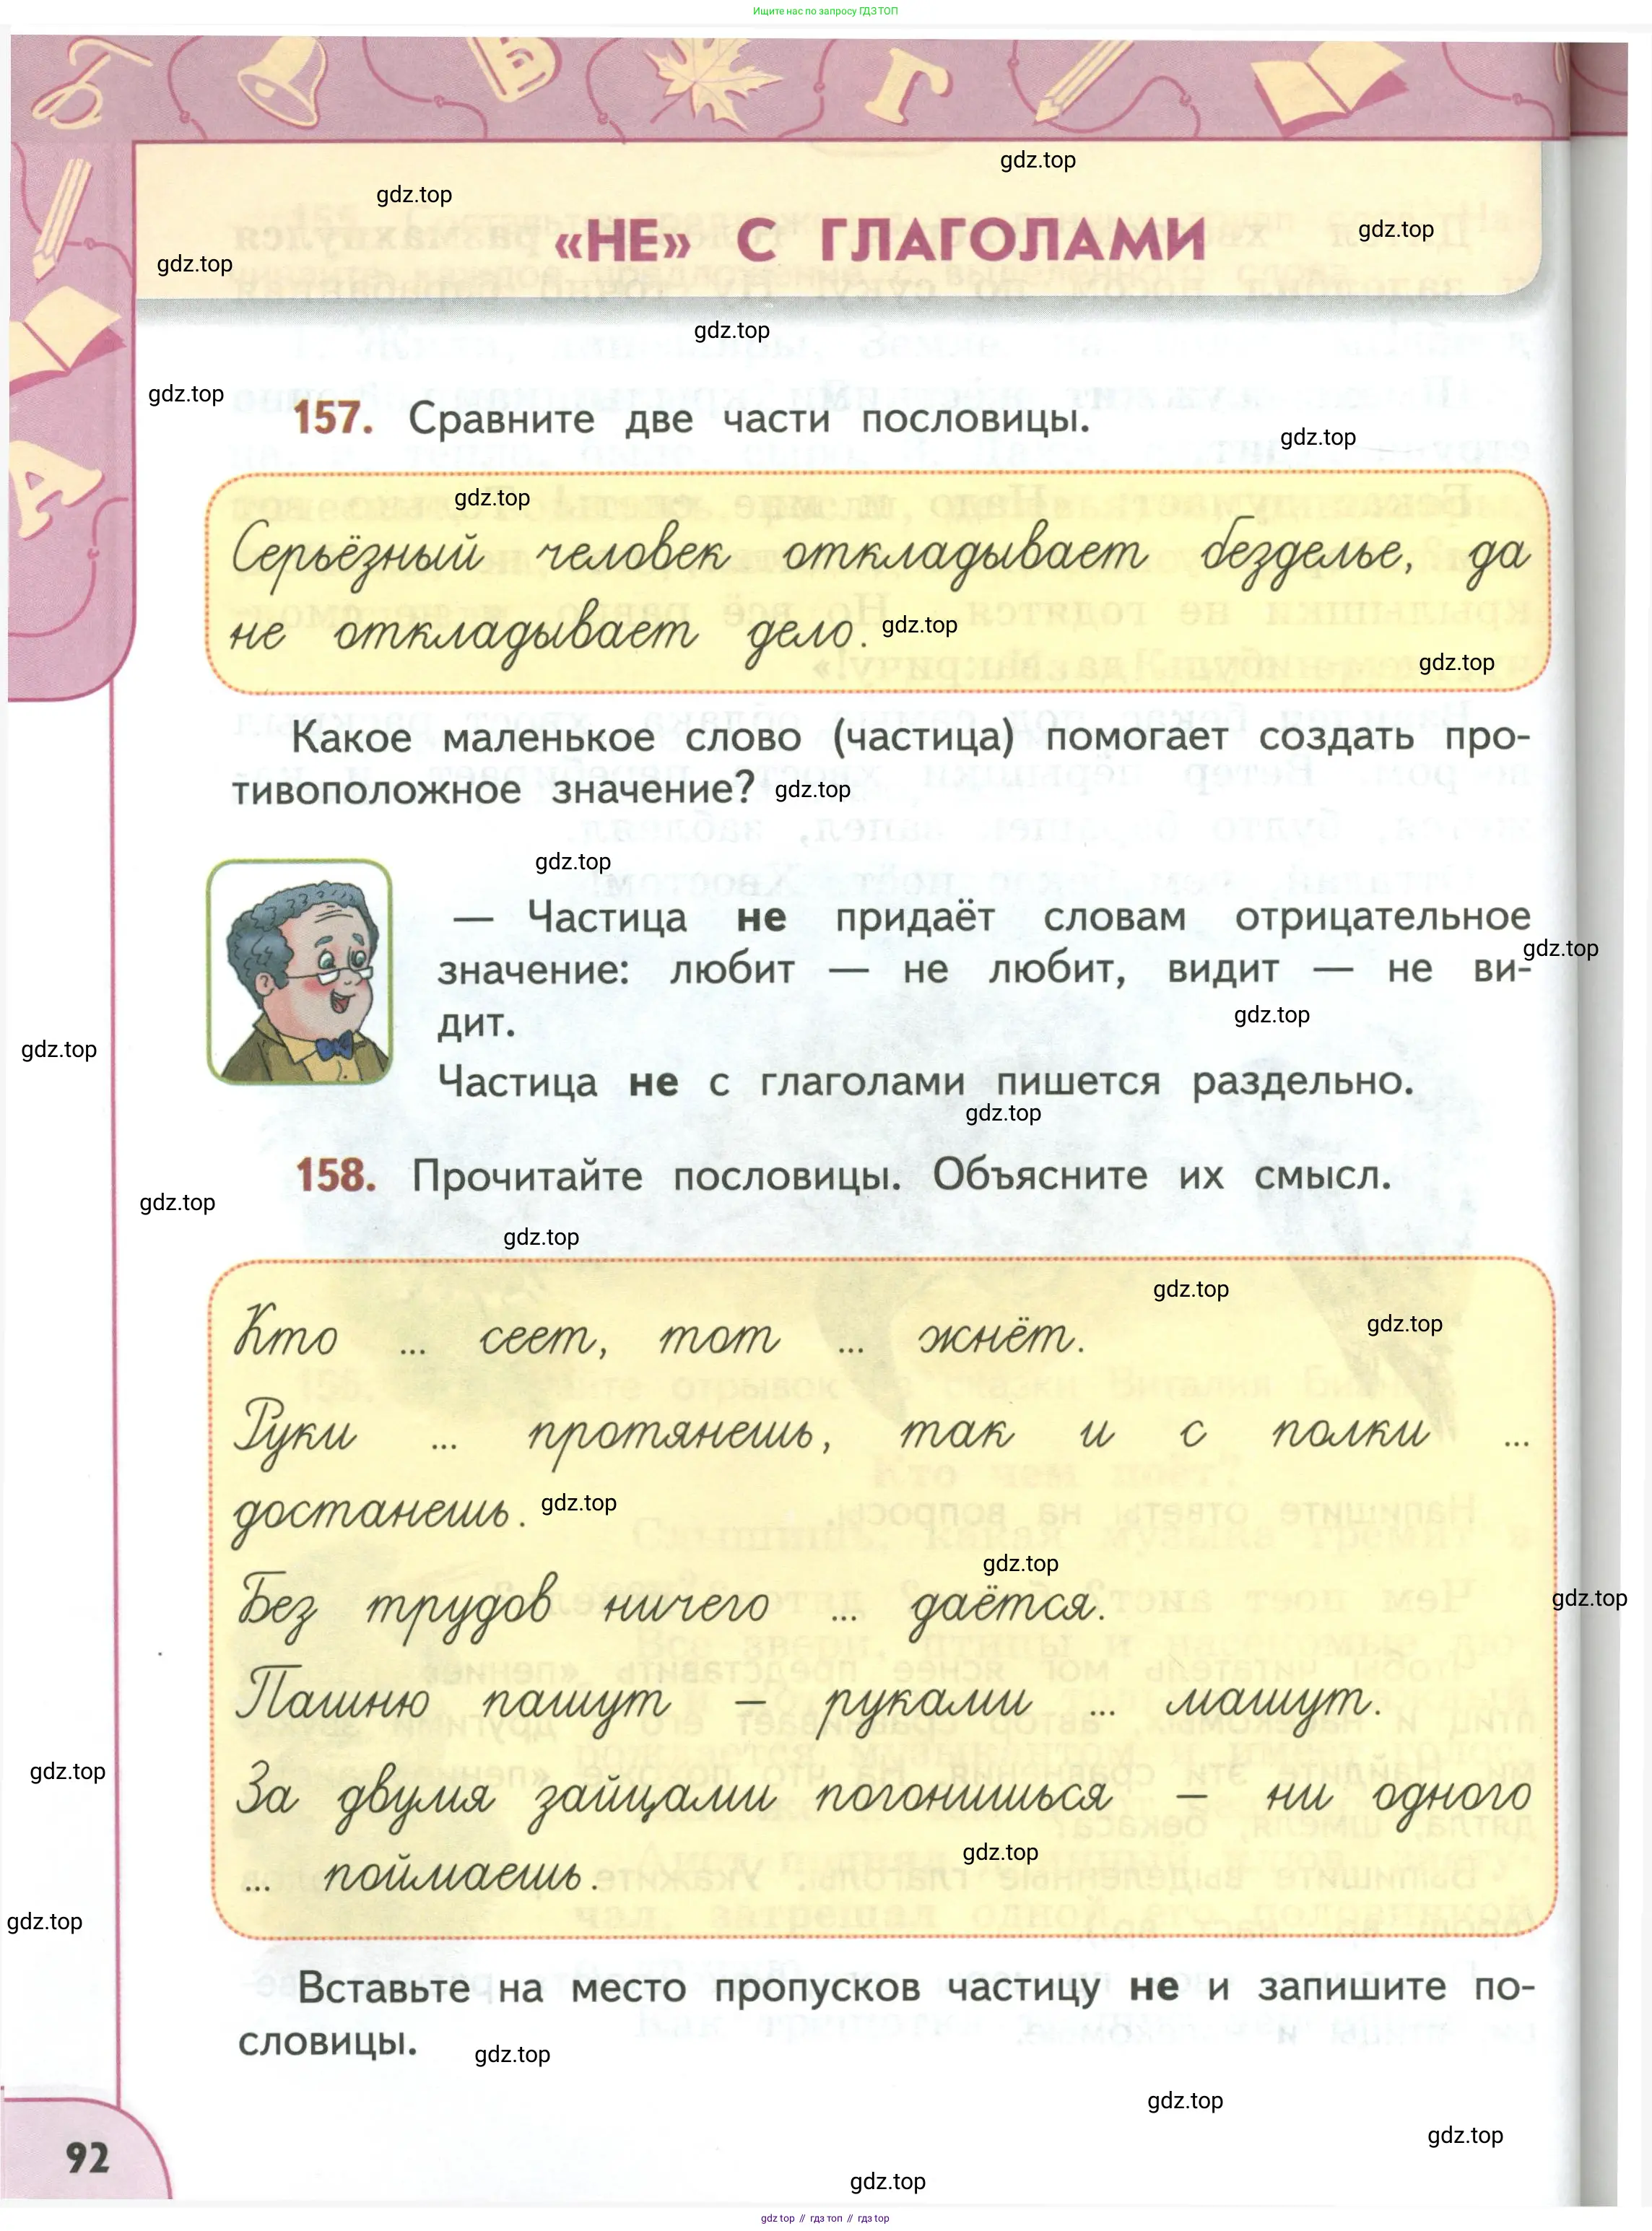 Ищите нас по запросу ГДЗ ТОП
gdz.top
gdz.top
«НЕ» С ГЛАГОЛАМИ
gdz.top
gdz.top
gdz.top
gdz.top
157. Сравните две части пословицы.
gdz.top
gdz.top
Серьёзный человек откладывает безделье, да
не откладывает дело.
gdz.top
gdz.top
Какое маленькое слово (частица) помогает создать про-
тивоположное значение?
gdz.top
gdz.top
— Частица не придаёт словам отрицательное
gdz.top
значение: любит — не любит, видит — не ви-
gdz.top
дит.
gdz.top
Частица не с глаголами пишется раздельно.
gdz.top
158. Прочитайте пословицы. Объясните их смысл.
gdz.top
gdz.top
gdz.top
gdz.top
Кто ... сеет, тот ... жнёт.
Руки ... протянешь, так и с полки ...
достанешь.
gdz.top
gdz.top
Без трудов ничего ... даётся.
gdz.top
Пашню пашут – руками ... машут.
gdz.top
За двумя зайцами погонишься – ни одного
gdz.top
... поймаешь.
gdz.top
Вставьте на место пропусков частицу не и запишите по-
словицы.
gdz.top
gdz.top
gdz.top
92
gdz.top
gdz.top // гдз топ // гдз top